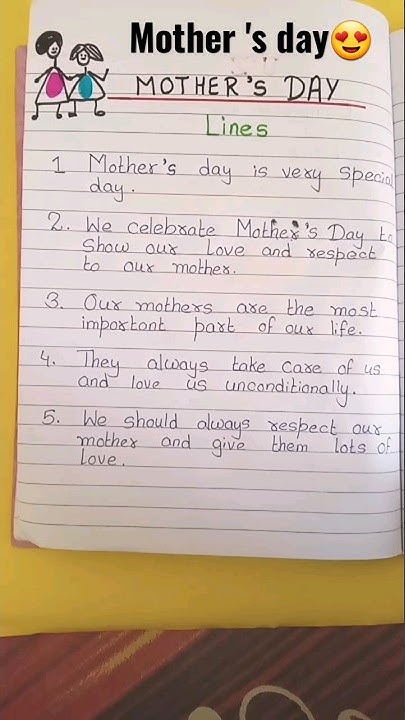 Mother 's day😍
MOTHER'S DAY
Lines
1 Mother's day is very special
day.
2. We celebrate Mother's Day to
Show our Love and respect
to our mother.
3. Our mothers are the most
important part of our life.
4. They always take care of us
and love us unconditionally.
5. We should always respect our
mother and give them lots of
Love.